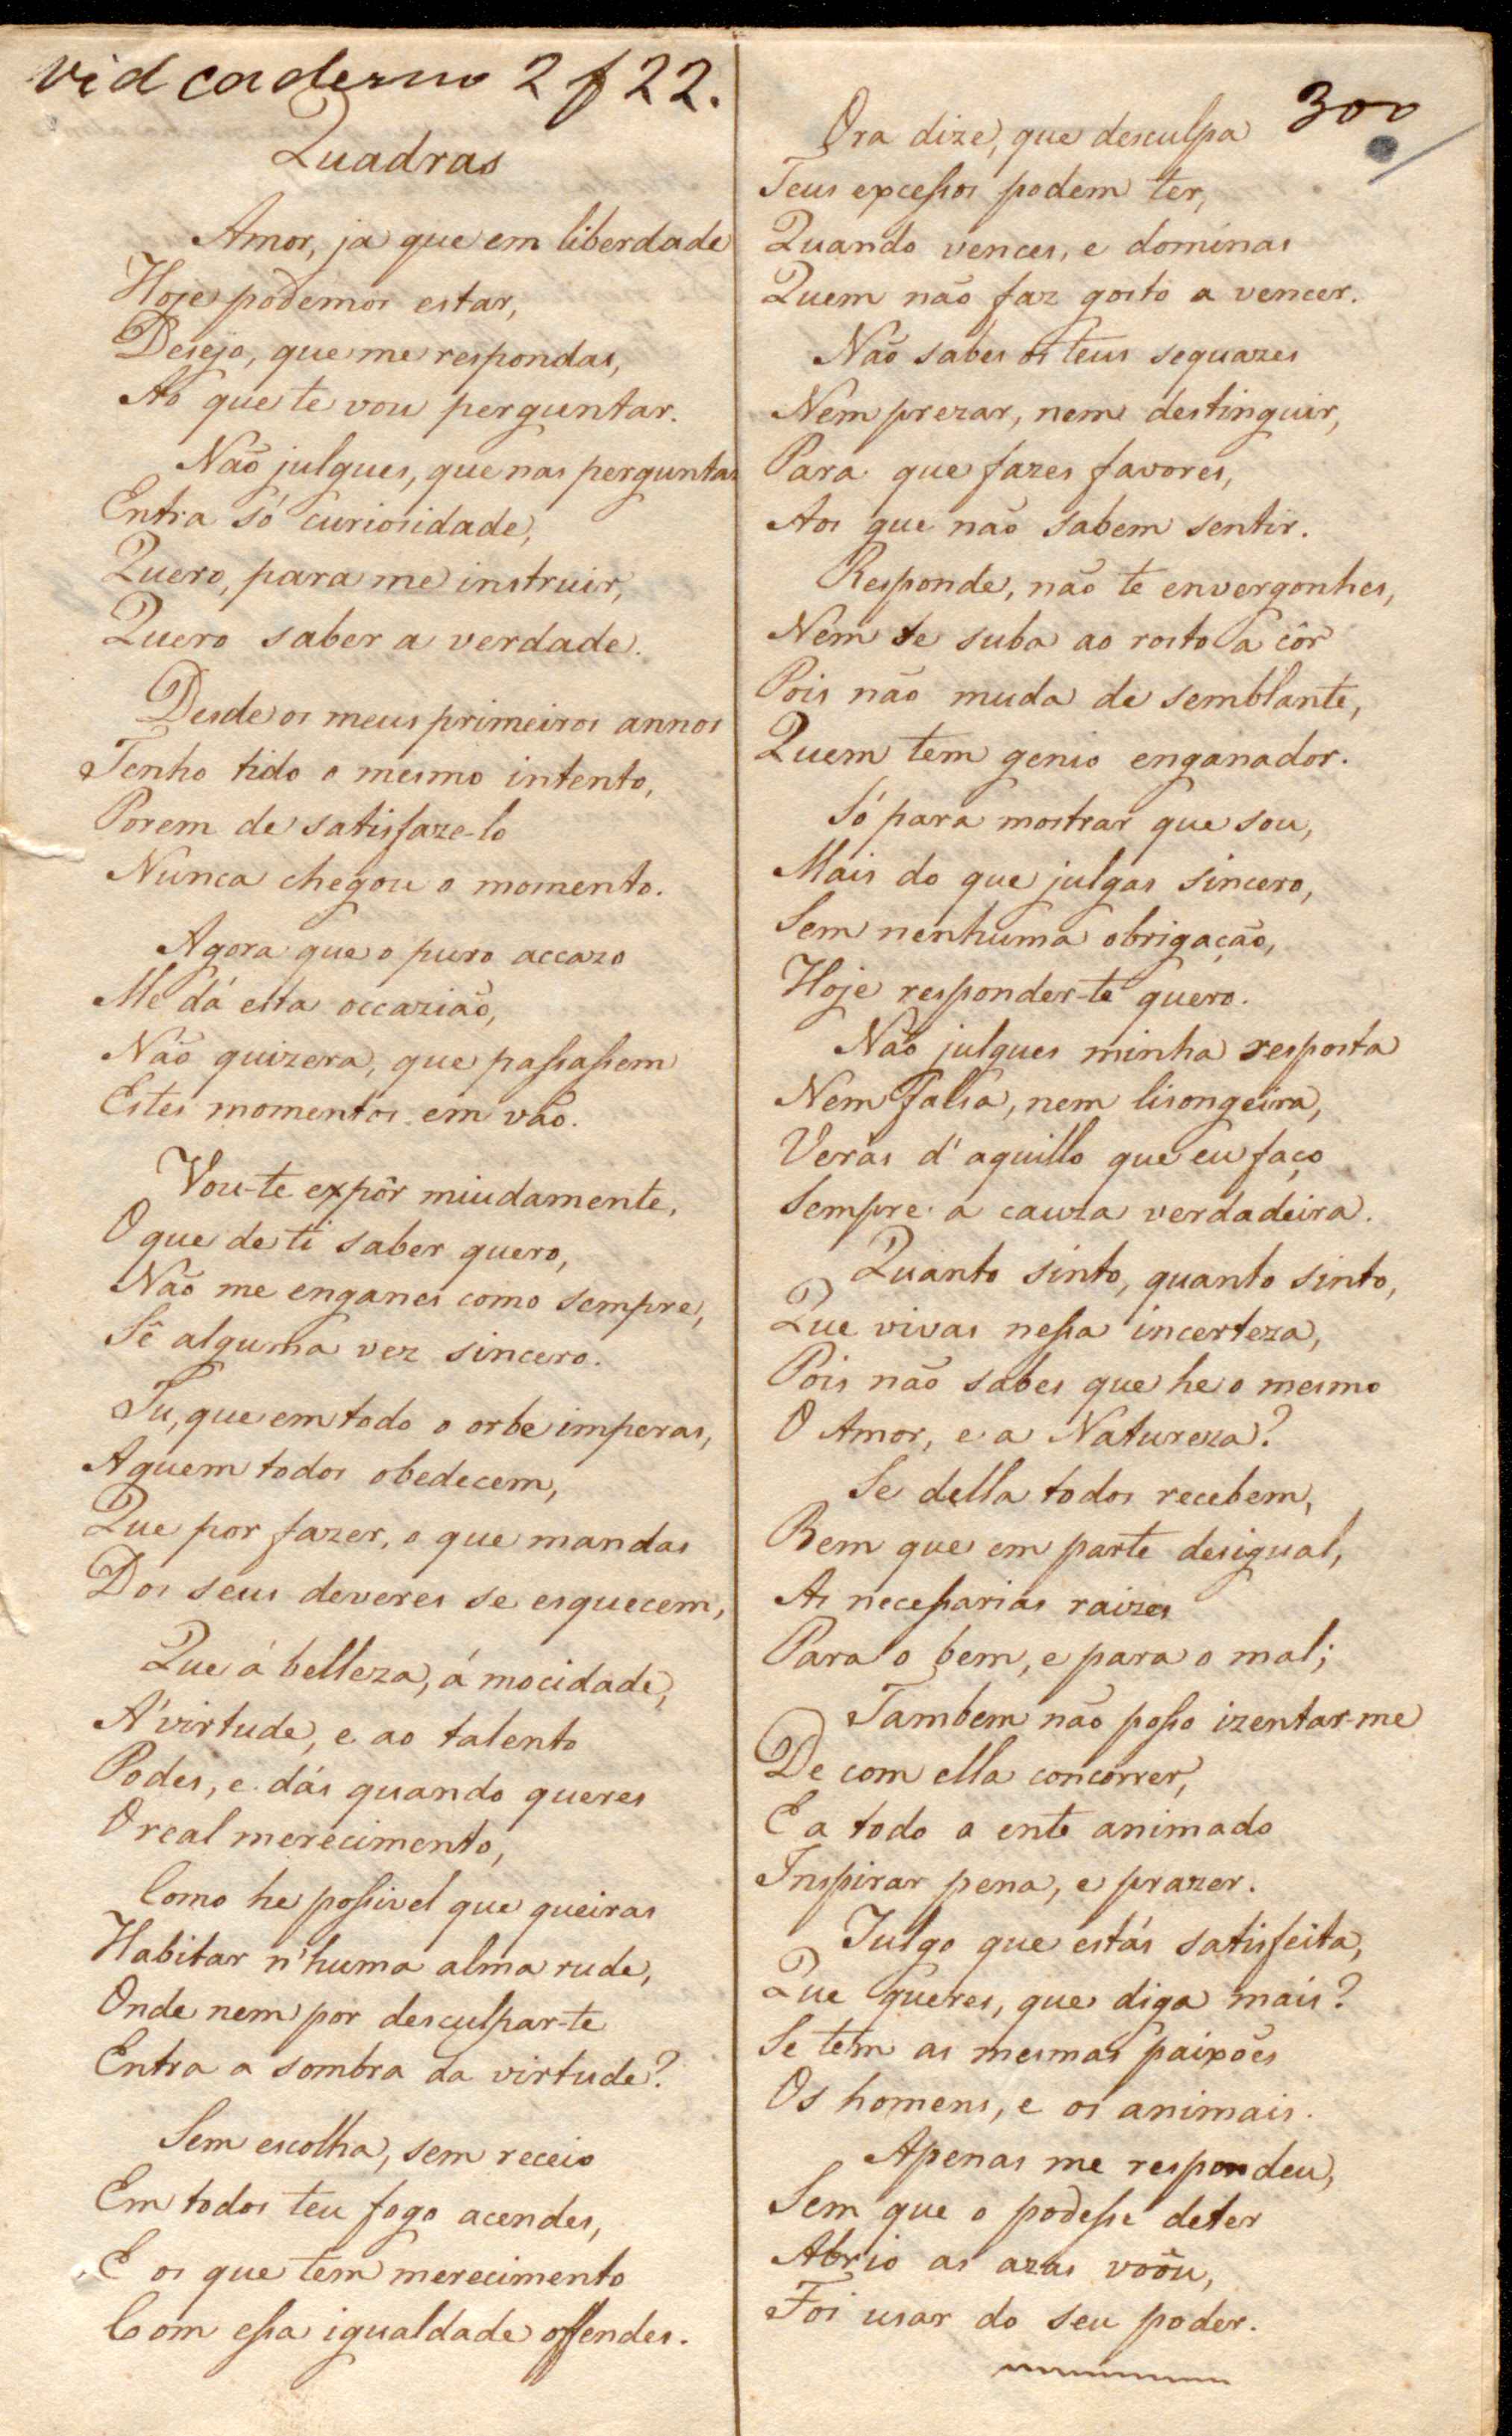 vid caderno 2 f 22.
300
Quadras
Amor, ja que em liberdade
Hoje podemos estar,
Desejo, que me respondas,
Ao que te vou perguntar.
Não julgues, que nas perguntas
Entra só curiosidade,
Quero, para me instruir,
Quero saber a verdade.
Desde os meus primeiros annos
Tenho tido o mesmo intento,
Porem de satisfaze-lo
Nunca chegou o momento.
Agora que o puro accazo
Me dá esta occazião,
Não quizera, que passassem
Estes momentos em vão.
Vou-te expôr miudamente,
O que de ti saber quero,
Não me enganes como sempre,
Sê alguma vez sincero.
Tu, que em todo o orbe imperas,
A quem todos obedecem,
Que por fazer, o que mandas
Dos seus deveres se esquecem,
Que á belleza, á mocidade,
A' virtude, e ao talento
Podes, e dás quando queres
O real merecimento,
Como he possivel que queiras
Habitar n'huma alma rude,
Onde nem por desculpar-te
Entra a sombra da virtude?
Sem escolha, sem receio
Em todos teu fogo acendes,
E os que tem merecimento
Com essa igualdade offendes.
Ora dize, que desculpa
Teus excessos podem ter,
Quando vences, e dominas
Quem não faz gosto a vencer.
Não sabes os teus sequazes
Nem prezar, nem destinguir,
Para que fazes favores,
Aos que não sabem sentir.
Responde, não te envergonhes,
Nem te suba ao rosto a côr
Pois não muda de semblante,
Quem tem genio enganador.
Só para mostrar que sou,
Mais do que julgas sincero,
Sem nenhuma obrigação,
Hoje responder-te quero.
Não julgues minha resposta
Nem falsa, nem lisongeira,
Verás d'aquillo que eu faço
Sempre a cauza verdadeira.
Quanto sinto, quanto sinto,
Que vivas nessa incerteza,
Pois não sabes que he o mesmo
O Amor, e a Natureza?
Se della todos recebem,
Bem que em parte desigual,
As necessarias raizes
Para o bem, e para o mal;
Tambem não posso izentar-me
De com ella concorrer,
E a todo o ente animado
Inspirar pena, e prazer.
Julgo que estás satisfeita,
Que queres, que diga mais?
Se tem as mesmas paixões
Os homens, e os animais.
Apenas me respondeu,
Sem que o podesse deter
Abrio as azas voôu,
Foi usar do seu poder.